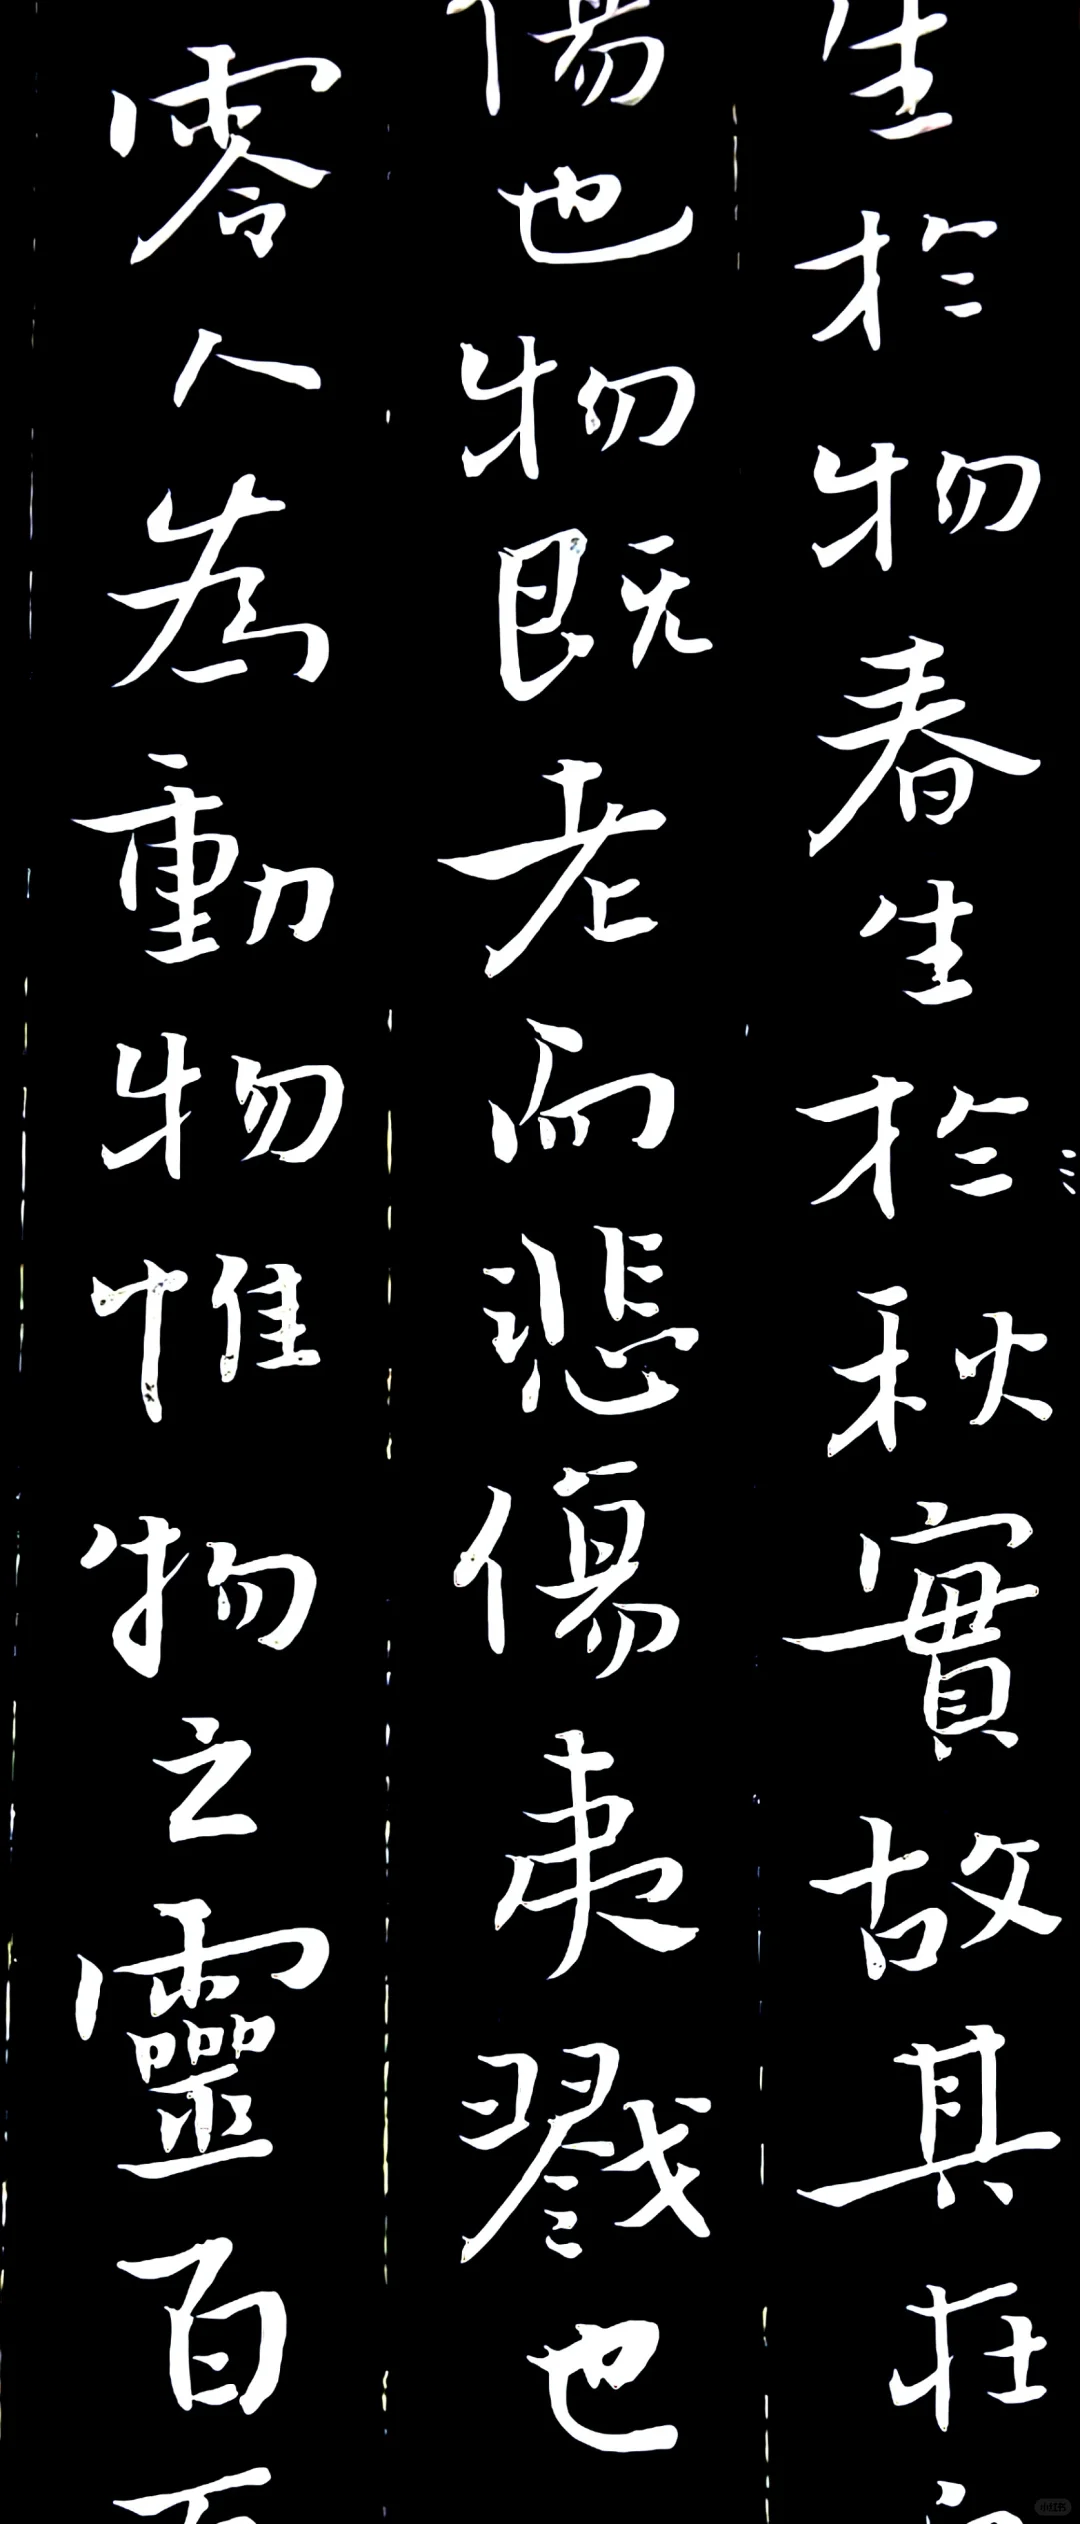 生於物春生於秋實故其在
傷也物既老而悲傷夷戮也
零人為動物惟物之靈百